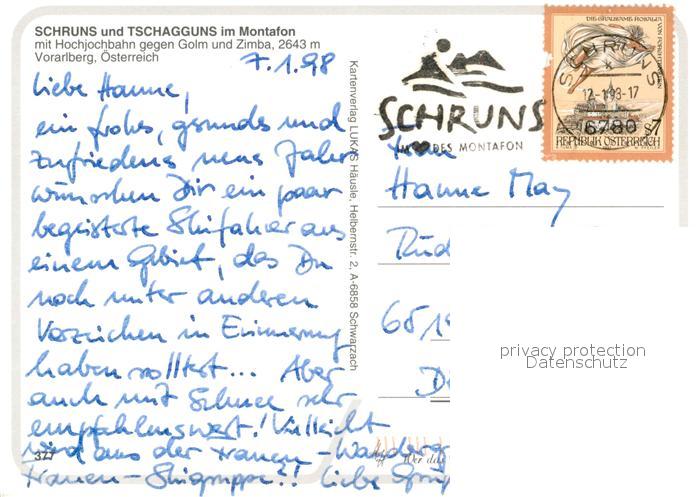 SCHRUNS und TSCHAGGUNS im Montafon
mit Hochjochbahn gegen Golm und Zimba, 2643 m
Vorarlberg, Österreich
7.1.98
Liebe Hanne,
ein frohes, gesundes und
zufriedenes neues Jahr
wünschen Dir ein paar
begeisterte Skifahrer aus
einem Gebiet, das Du
noch unter anderen
Vorzeichen in Erinnerung
haben solltest... Aber
auch mit Schnee sehr
empfehlenswert! Vielleicht
wird aus der Frauen-Wander
Frauen-Skigruppe?! Liebe Grü
377
Kartenverlag LUKAS Häusle, Helbernstr. 2, A-6858 Schwarzach
SCHRUNS
IM HERZ DES MONTAFON
DIE GRAUSAME ROSALIA
VON FORCHTENSTEIN
SCHRUNS
12-1-98-17
6780
S 7
REPUBLIK ÖSTERREICH
Frau
Hanne May
privacy protection
Datenschutz